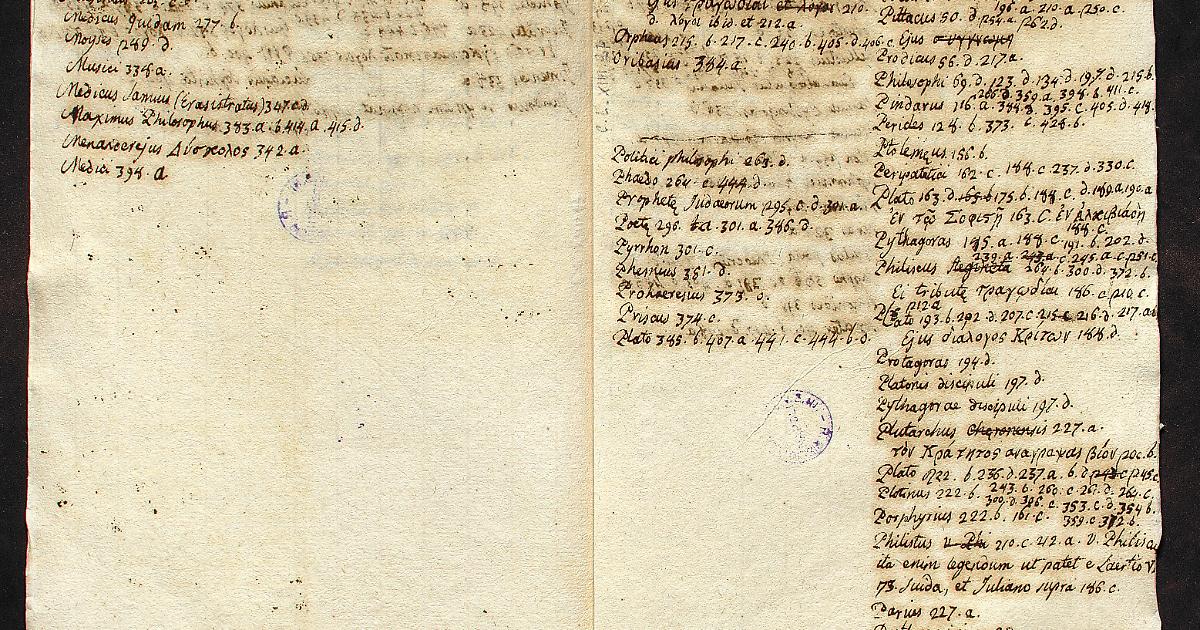 Medicus quidam 277. b.
Moyses 289. d.
Musici 338 a.
Medicus Samius (Erasistratus) 347. c. d
Maximus Philosophus 383. a. b. 414. a. 415. d.
Menandri ejus Δύσκολος 342. a.
Medici 398. a
210.
d. λόγοι ibid. et 212. a.
Orpheus 215. b. 217. c. 240. b. 405. d. 406. c.
Oribasius 384. a
Politici philosophi 263. d.
Phaedo 264. c. 444. d.
Prophetę Judaeorum 295. c. d. 301. a.
Poetę 296. 301. a. 386. d.
Pyrrhon 301. c.
Phemius 351. d.
Prohaeresius 373. d.
Priscus 374. c.
Plato 385. b. 407. a. 441. c. 444. b. d.
196. a. 210. a. 250. c.
Pittacus 50. d. 254. a. 262. d.
Ejus συγγνωμη
Prodicus 56. d. 217. a.
Philosophi 69. d. 123. d. 134. d. 197. d. 215. b.
266. d. 359. a. 398. b. 411. c.
Pindarus 116. a. 384. d. 395. c. 405. d. 418.
Pericles 128. b. 373. c. 428. b.
Ptolemęus 156. b.
Peripatetici 162. c. 188. c. 237. d. 330. c.
Plato 163. d. 165. b 175. b. 188. c. d. 189. a. 190. a
ἐν τῷ Σοφιστῇ 163. C. ἐν Ἀλκιβιάδῃ
188. c.
Pythagoras 185. a. 188. c. 191. b. 202. d.
239. a. 243. a. c. 245. a. c. 251. c.
Philiscus Aegineta 264. b. 300. d. 372. b.
Ei tributę τραγῳδίαι 186. c. 210. c.
212. a
Plato 193. b. 202. d. 207. c. 215. c. 216. d. 217. a.
Ejus διάλογος Κρίτων 188. d.
Protagoras 194. d.
Platonis discipuli 197. d.
Pythagorae discipuli 197. d.
Plutarchus Cheronensis 227. a.
τὸν Κράτητος ἀναγράψας βίον 200. b.
Plato 222. b. 236. d. 237. a. b. d. 245. c.
Plotinus 222. b. 243. b. 260. c. 262. d. 264. c.
300. d. 306. c. 353. c. d. 354. b.
Porphyrius 222. b. 161. c. 359. c. 372. b.
Philistus v. Phi 210. c. 212. a. v. Philisc
ita enim legendum ut patet e Laertio V.
73. Suida, et Juliano supra 186. c.
Parius 227. a.